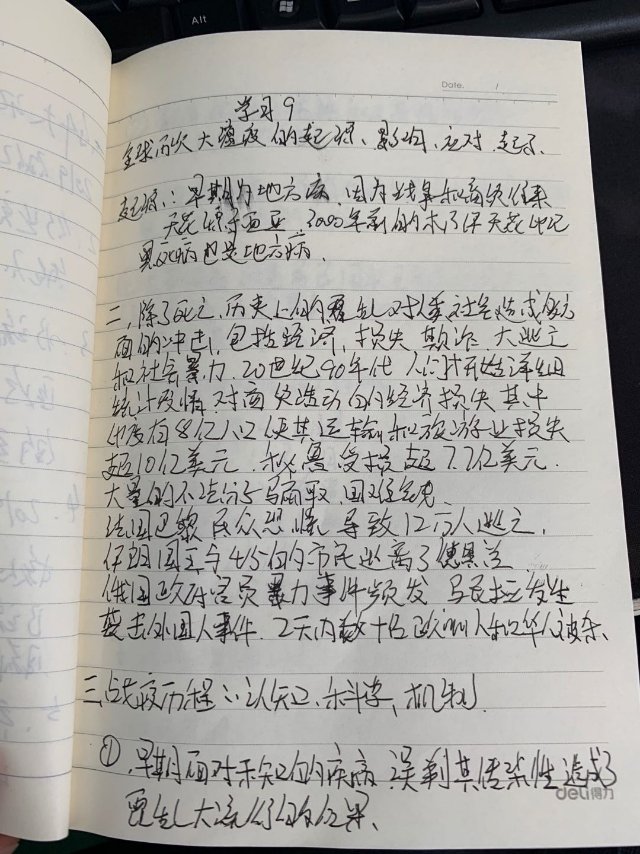 Alt
Date. /
学习9
全球历次大瘟疫的起源、影响、应对、启示.
起源:早期为地方病,因为战争和商贸传染
天花 源于西亚,3000年前的木乃伊天花
黑死病也是地方病.
二,除了死亡,历史上的瘟疫对人类社会造成
面的冲击,包括经济,损失 欺诈 大逃亡
和社会暴力. 20世纪90年代 人们才开始详细
统计疫情对商贸活动的经济损失 其中
印度有8亿人口 使其运输和旅游业损失
超10亿美元. 秘鲁受损超7.7亿美元.
大量的不法分子
法国巴黎民众恐慌 导致12万人逃亡,
伊朗国王与4/5的市民逃离了德黑兰
俄国政府官员暴力事件频发 马尼拉发生
袭击外国人事件. 2天内数十名欧洲人和华人被杀.
三,战疫历程:认知, 科学, 机制.
① 早期面对未知的疾病 误判其传染性造成了
大流行的后果、
deli得力